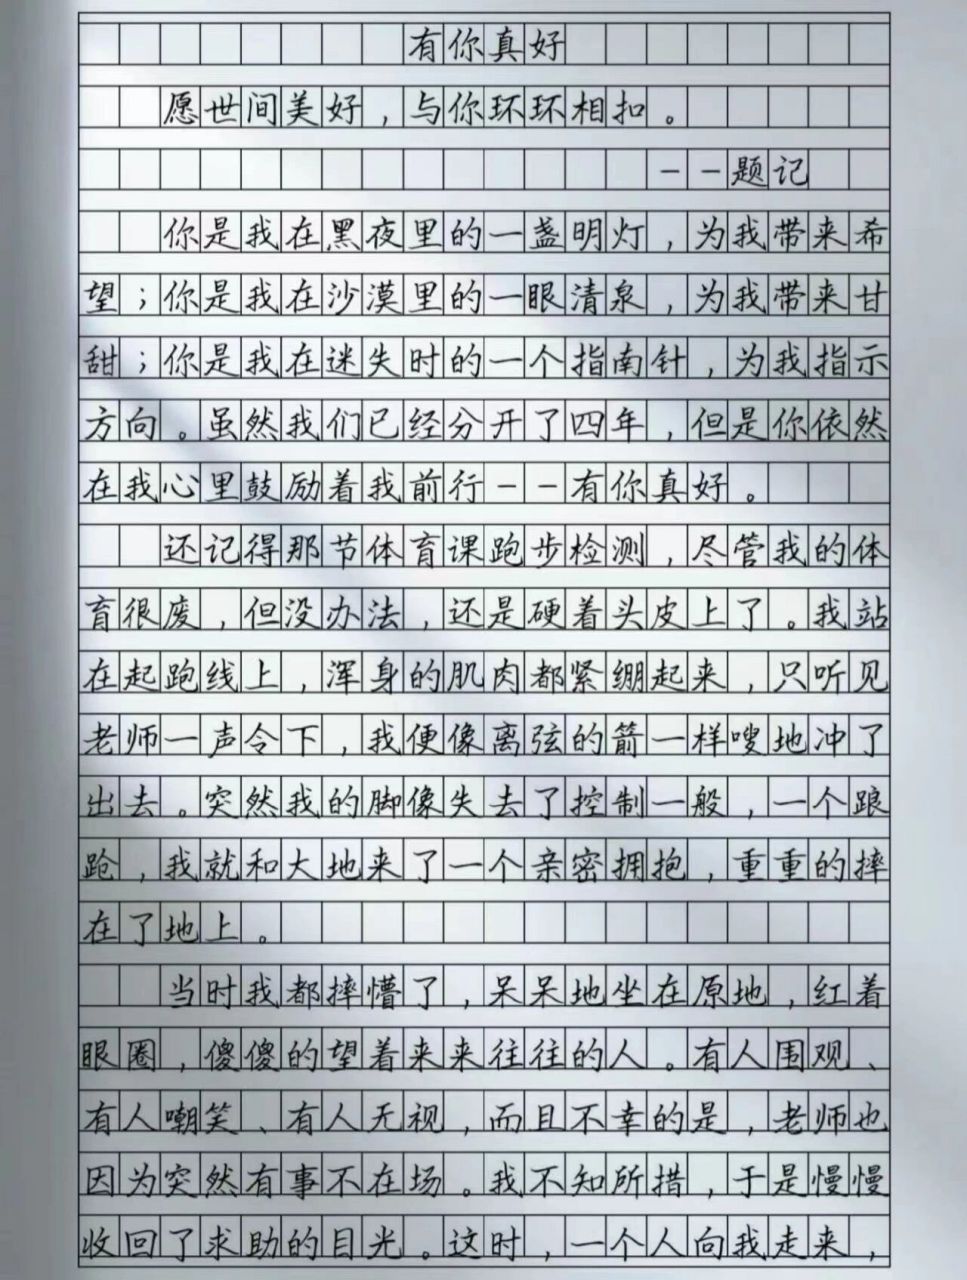 有你真好
愿世间美好，与你环环相扣。
--题记
你是我在黑夜里的一盏明灯，为我带来希
望；你是我在沙漠里的一眼清泉，为我带来甘
甜；你是我在迷失时的一个指南针，为我指示
方向。虽然我们已经分开了四年，但是你依然
在我心里鼓励着我前行--有你真好。
还记得那节体育课跑步检测，尽管我的体
育很废，但没办法，还是硬着头皮上了。我站
在起跑线上，浑身的肌肉都紧绷起来，只听见
老师一声令下，我便像离弦的箭一样嗖地冲了
出去。突然我的脚像失去了控制一般，一个踉
跄，我就和大地来了一个亲密拥抱，重重的摔
在了地上。
当时我都摔懵了，呆呆地坐在原地，红着
眼圈，傻傻的望着来来往往的人。有人围观、
有人嘲笑、有人无视，而且不幸的是，老师也
因为突然有事不在场。我不知所措，于是慢慢
收回了求助的目光。这时，一个人向我走来，